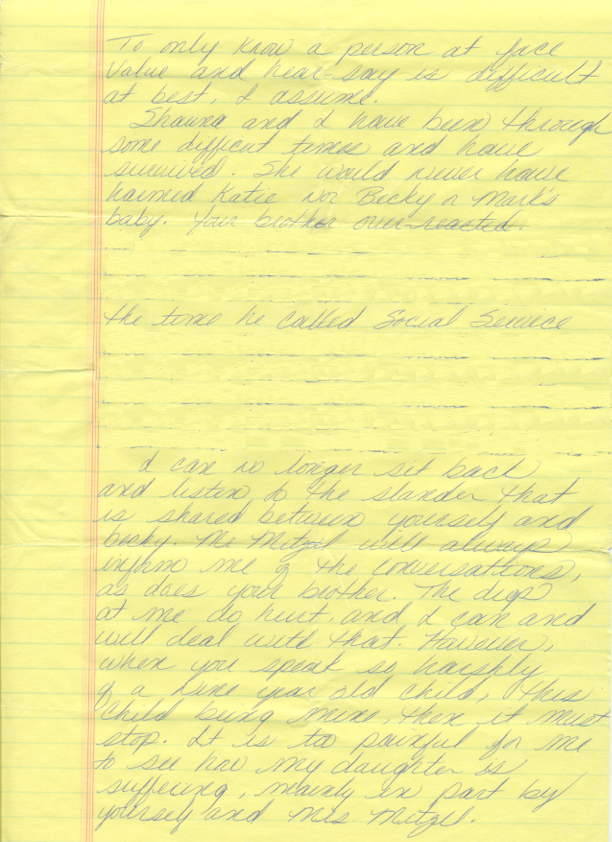 To only know a person at face
value and hear-say is difficult
at best, I assume.
Shauna and I have been through
some difficut times and have
survived. She would never have
harmed Katie nor Becky or Mark's
baby. Your brother over-reacted.
the time he called Social Service
I can no longer sit back
and listen to the slander that
is shared between yourself and
becky. Mr Mitzel will always
inform me of the conversations,
as does your brother. The digs
at me do hurt, and I can and
will deal with that. However,
when you speak so harshly
of a nine year old child, this
child being mine, then it must
stop. It is to painful for me
to see how my daughter is
suffering, mainly in part by
yourself and Mrs. Mitzel.